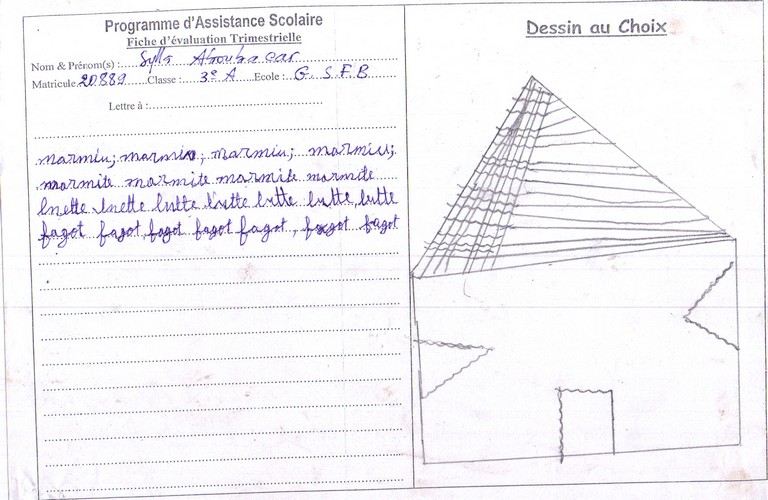 Programme d'Assistance Scolaire
Fiche d'évaluation Trimestrielle
Nom & Prénom(s) : Sylla Aboubacar
Matricule 20889 Classe : 3e A Ecole : G. S. F. B
Lettre à :
marmiu; marmiu; marmiu; marmiu;
marmite marmite marmite marmite
lutte lutte lutte lutte lutte
fagot fagot fagot fagot fagot, fagot fagot
Dessin au Choix